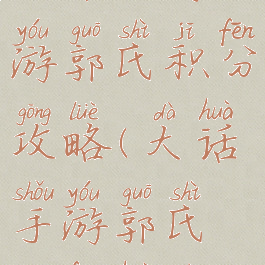 yóu guō shì jī fēn
游郭氏积分
gōng lüè dà huà
攻略(大话
shǒu yóu guō shì
手游郭氏